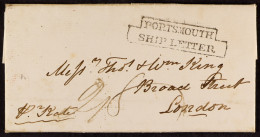 PORTSMOUTH
SHIP LETTER
Messrs Thos & Wm King
Broad Street
London
pr Kate
2/8